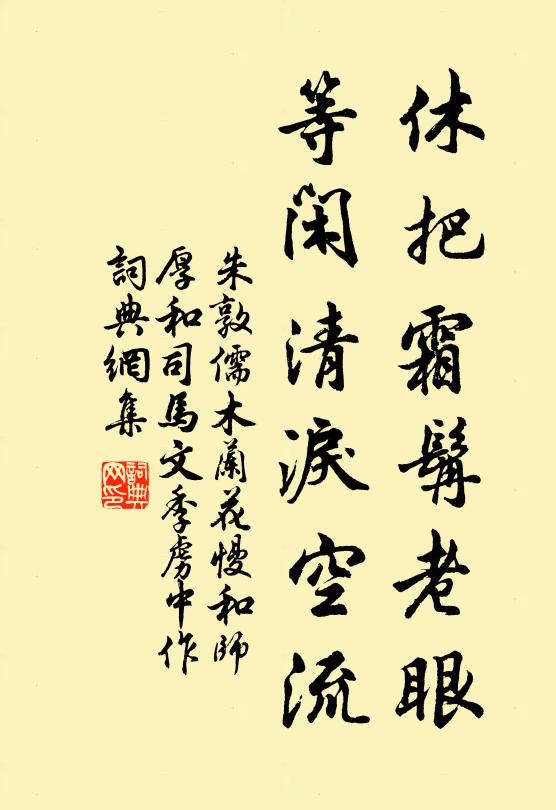 休把霜鬢老眼
等閑清淚空流
朱敦儒木蘭花慢和師
厚和司馬文季虜中作
詞典網集
詞典網印